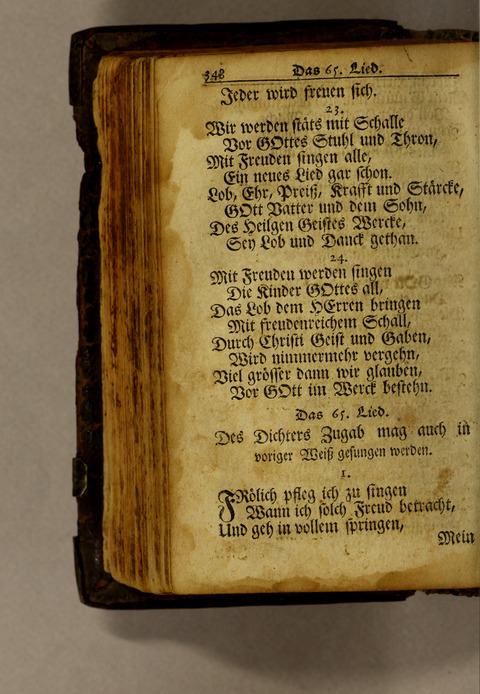 348 Das 65. Lied.
Jeder wird freuen sich.
23.
Wir werden stäts mit Schalle
Vor GOttes Stuhl und Thron,
Mit Freuden singen alle,
Ein neues Lied gar schon.
Lob, Ehr, Preiß, Krafft und Stärcke,
GOtt Vatter und dem Sohn,
Des Heilgen Geistes Wercke,
Sey Lob und Danck gethan.
24.
Mit Freuden werden singen
Die Kinder GOttes all,
Das Lob dem HErren bringen
Mit freudenreichem Schall,
Durch Christi Geist und Gaben,
Wird nimmermehr vergehn,
Viel grösser dann wir glauben,
Vor GOtt im Werck bestehn.
Das 65. Lied.
Des Dichters Zugab mag auch in
voriger Weiß gesungen werden.
1.
FRölich pfleg ich zu singen
Wann ich solch Freud betracht,
Und geh in vollem springen,
Mein